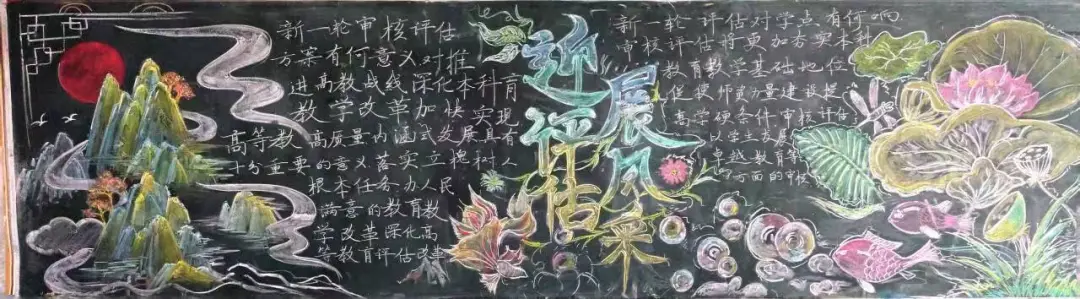 新一轮审核评估
方案有何意义对推
进高教战线深化本科育
教学改革加快实现
高等教高质量内涵式发展具有
十分重要的意义落实立德树人
根本任务办人民
满意的教育教
学改革深化高
等教育评估改革
迎评估
展风采
新一轮评估对学点有何响
审核评估将更加夯实本科
教育教学基础地位
促搜师资力量建设提
高学硬条件审核评估
以学生发展
卓越教育等
方面的审核